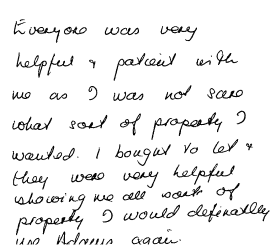 Everyone was very
helpful & patient with
me as I was not sure
what sort of property I
wanted. I bought to let &
they were very helpful
showing me all sort of
property I would definatley
use Adams again.